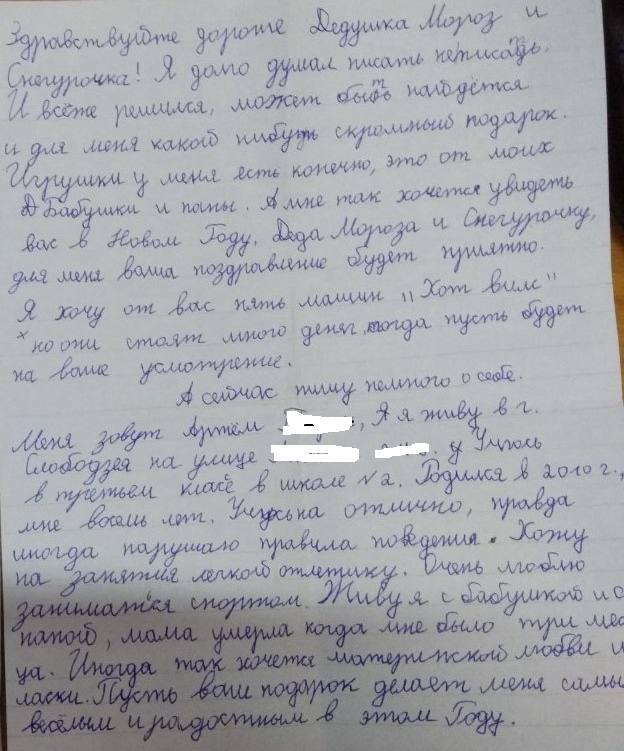 Здравствуйте дорогие Дедушка Мороз и
Снегурочка! Я долго думал писать не писать.
И всёже решился, может быть найдётся
и для меня какой нибуть скромный подарок.
Игрушки у меня есть конечно, это от моих
Бабушки и папы. А мне так хочется увидеть
вас в Новом Году, Деда Мороза и Снегурочку,
для меня ваша поздравление будет приятно.
Я хочу от вас пять машин „Хот вилс"
но они стоят много денег, тогда пусть будет
на ваше усмотрение.
А сейчас пишу немного о себе.
Меня зовут Артём , Я я живу в г.
Слободзея на улице у Учюсь
в третьем класе в школе №2. Родился в 2010 г.,
мне восемь лет. Учусь на отлично, правда
иногда нарушаю правила поведения. Хожу
на занятия легкой отлетику. Очень люблю
заниматся спортом. Живу я с бабушкой и с
папой, мама умерла когда мне было три мес
ца. Иногда так хочется материнской любви и
ласки. Пусть ваш подарок делает меня самы
весёлым и радостным в этом Году.